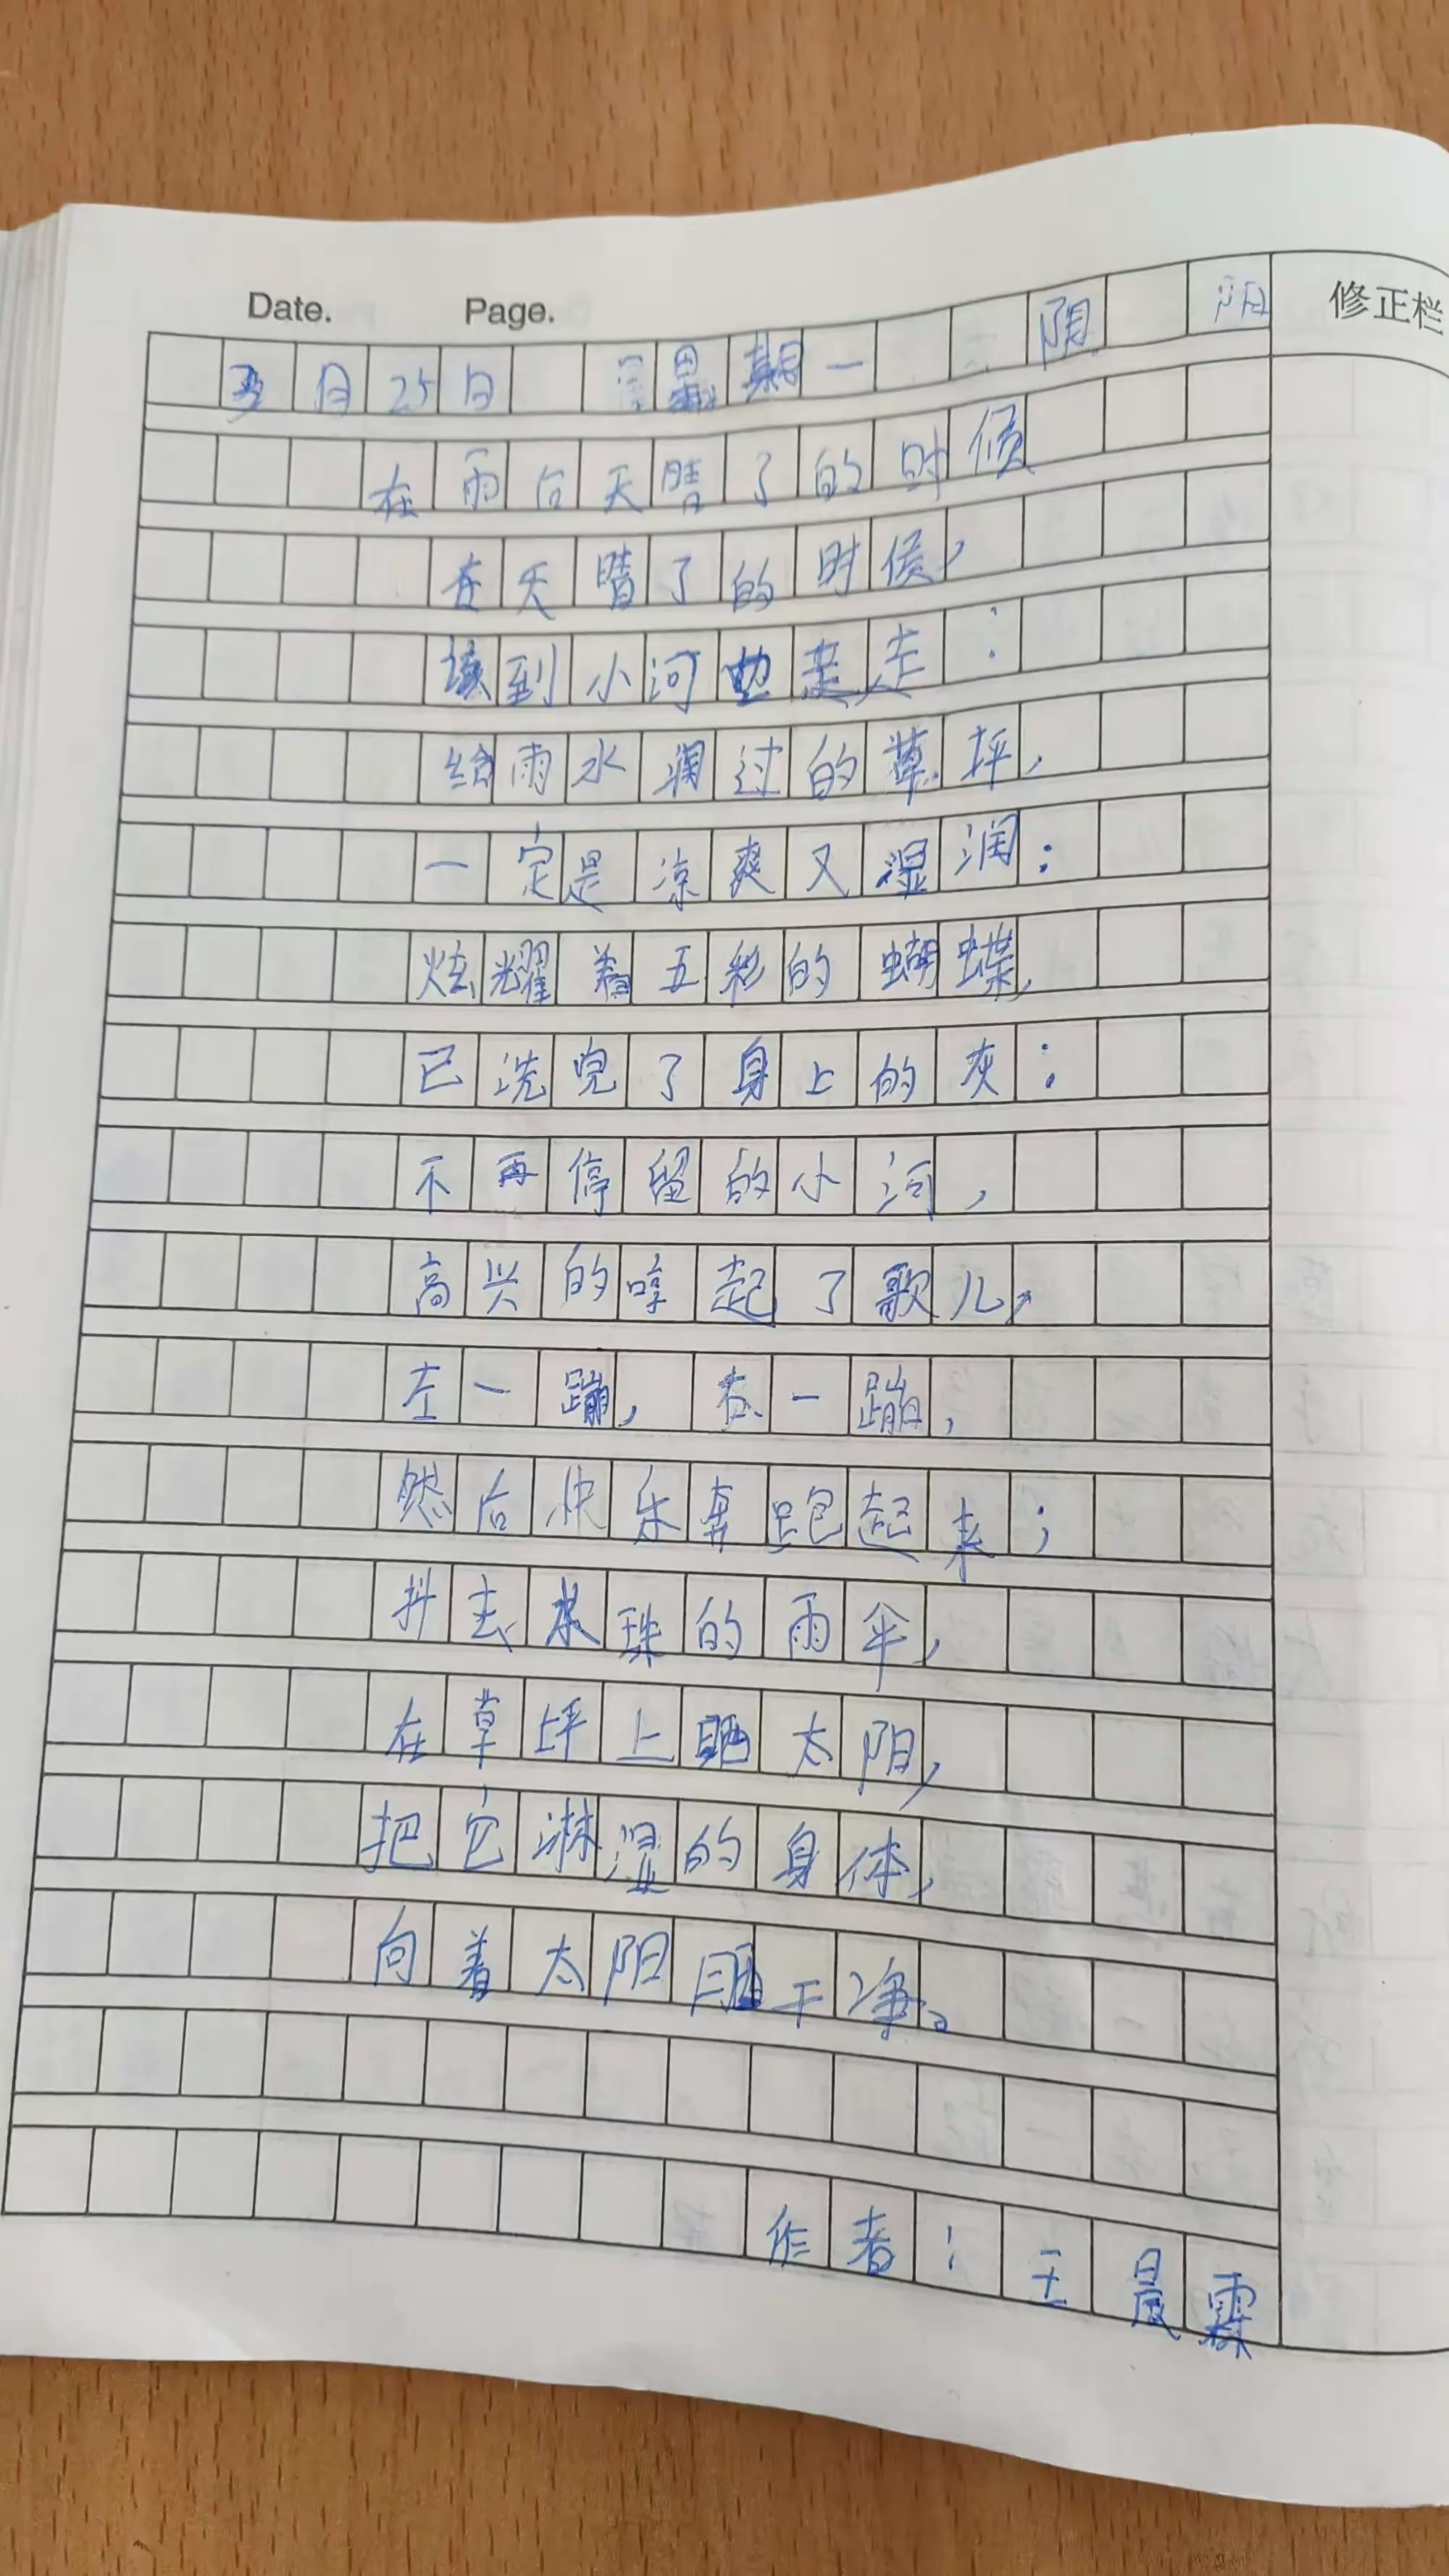 Date. Page.
修正栏
5月25日 星期一 阴
在雨后天晴了的时候
在天晴了的时候,
该到小河边走走:
给雨水润过的草坪,
一定是凉爽又湿润;
炫耀着五彩的蝴蝶,
已洗完了身上的灰;
不再停留的小河,
高兴的哼起了歌儿,
左一蹦,右一蹦,
然后快乐奔跑起来;
抖去水珠的雨伞,
在草坪上晒太阳,
把它淋湿的身体,
向着太阳晒干净。
作者:王晨霖